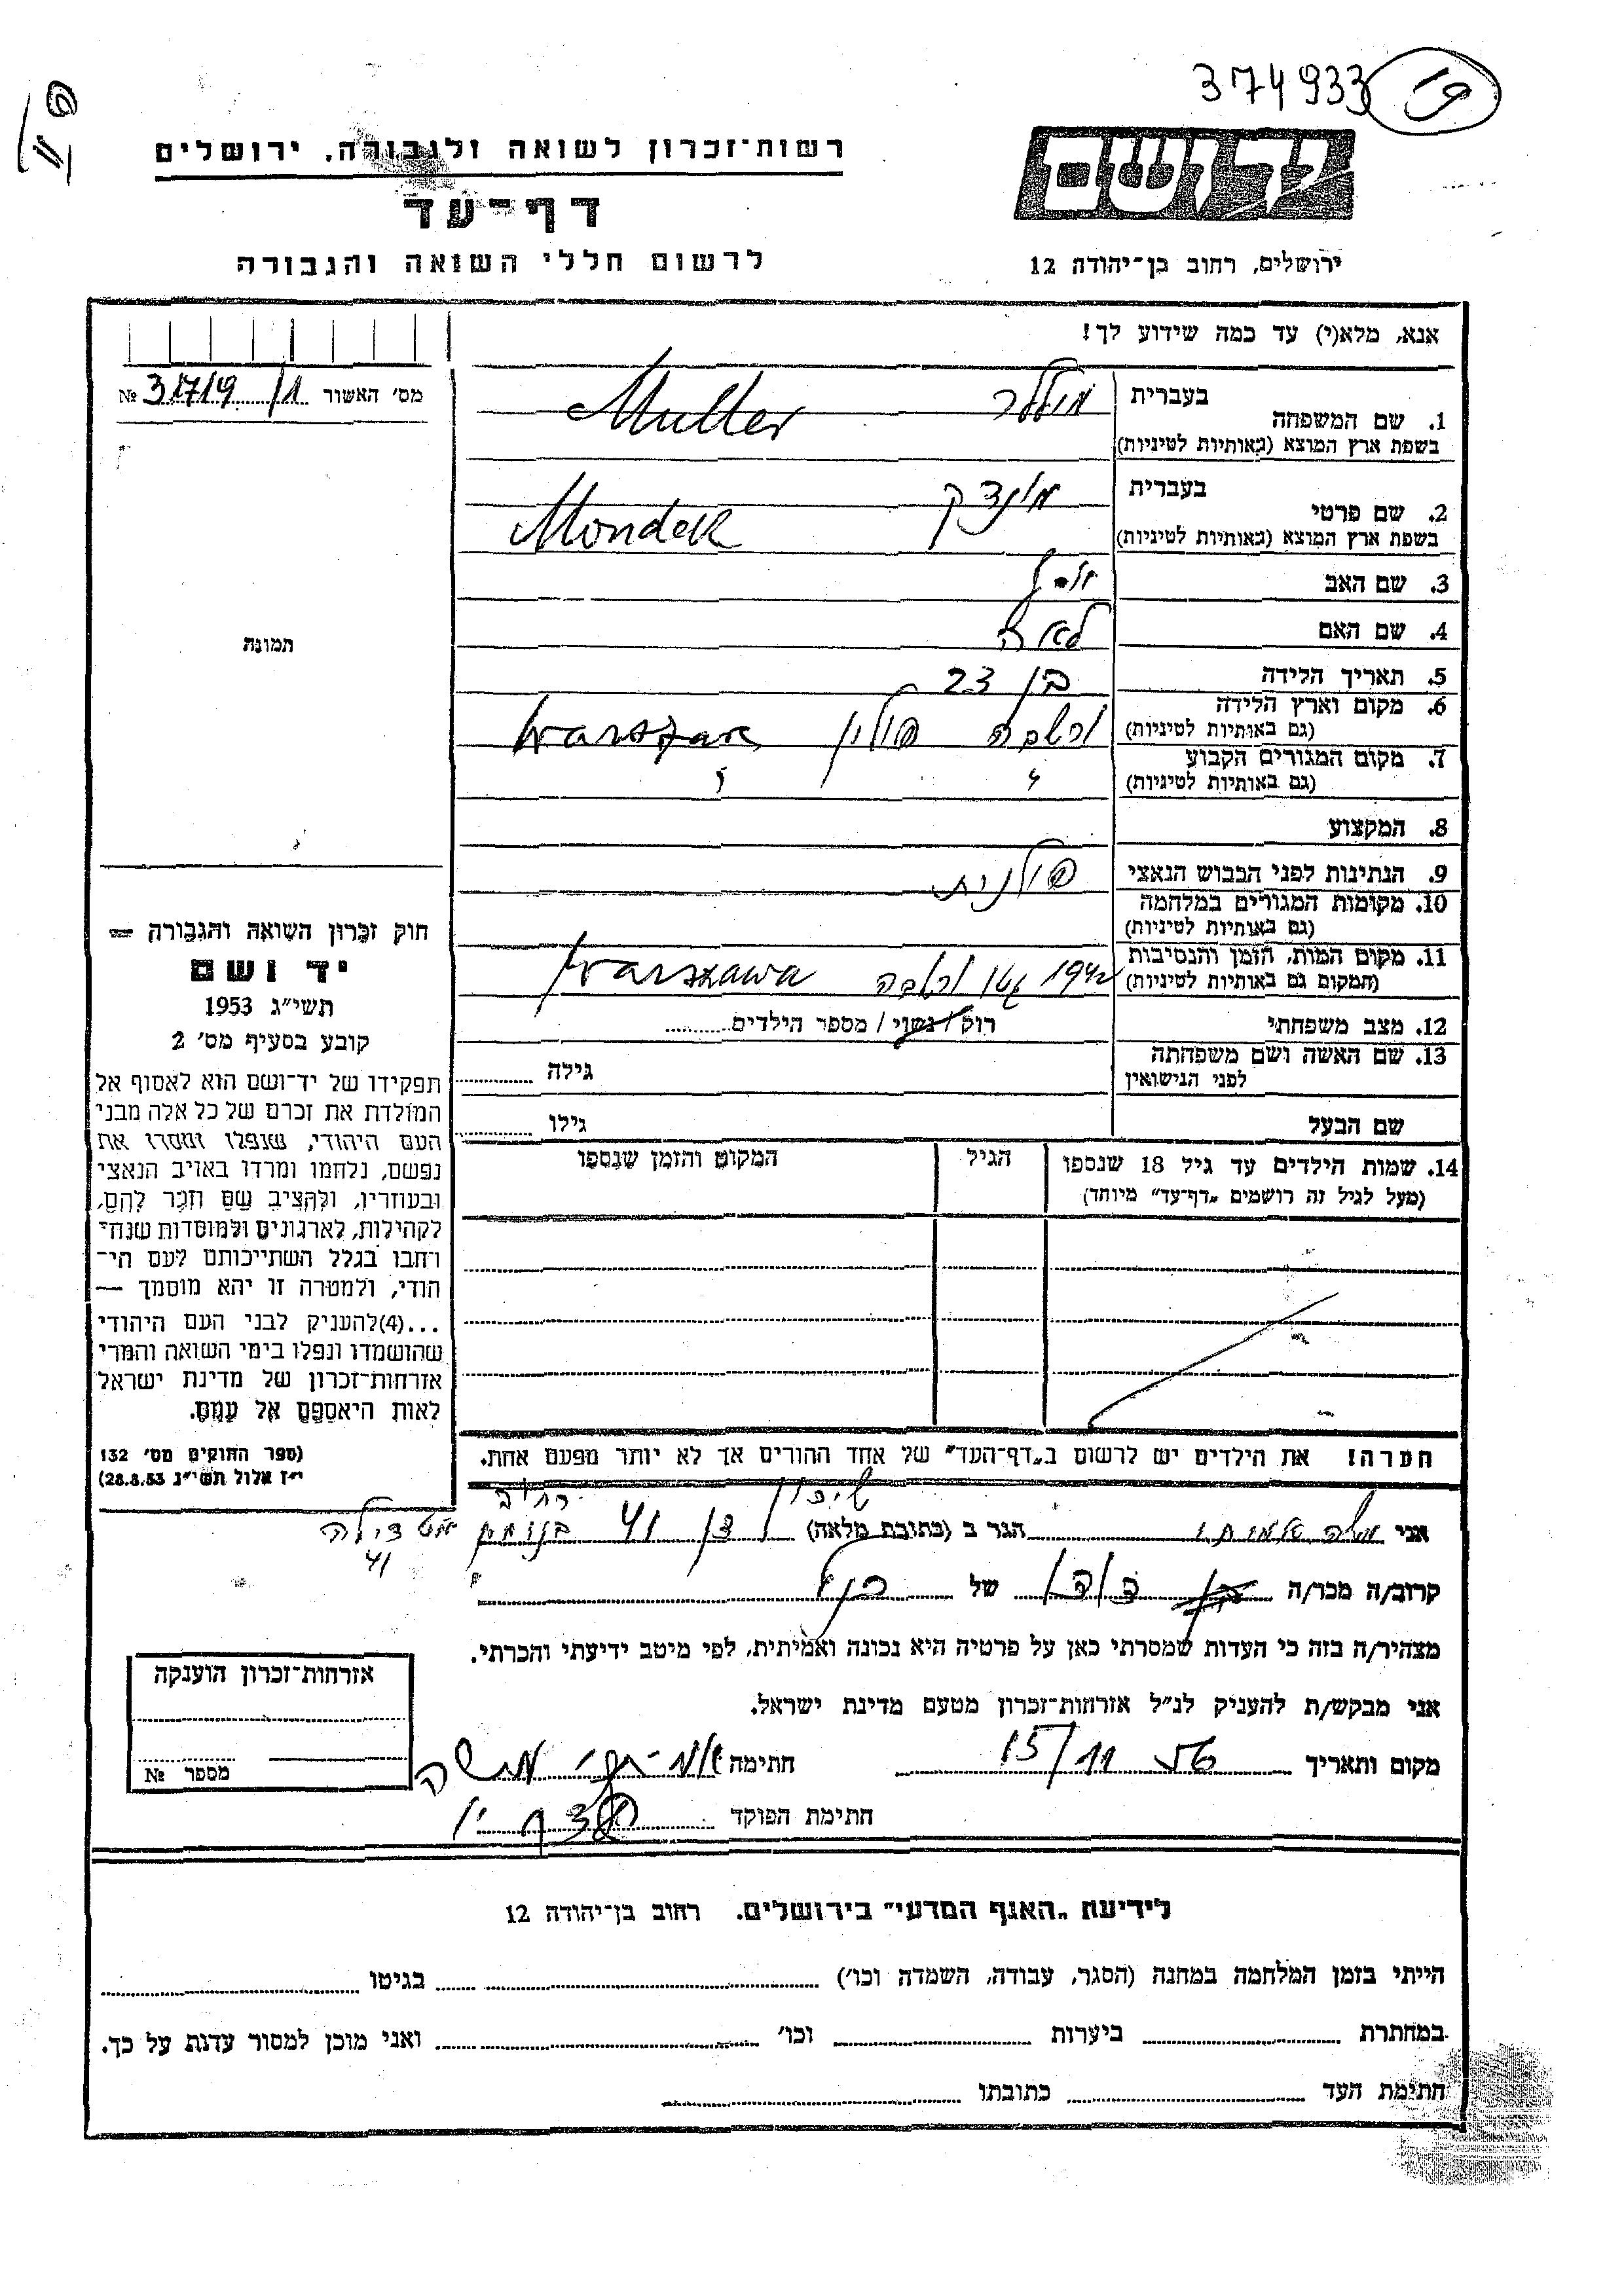 374933
רשות־זכרון לשואה ולגבורה, ירושלים
דף־עד
לרשום חללי השואה והגבורה
ידושם
ירושלים, רחוב בן־יהודה 12
אנא, מלא(י) עד כמה שידוע לך!
מס׳ האשור 1/ 31719 №
תמונה
1. שם המשפחה
בעברית מולער
בשפת ארץ המוצא (באותיות לטיניות) Muller
2. שם פרטי
בעברית מונדק
בשפת ארץ המוצא (באותיות לטיניות) Mondek
3. שם האב
4. שם האם לאה
5. תאריך הלידה בן 23
6. מקום וארץ הלידה ורשבה פולין Warszawa
(גם באותיות לטיניות)
7. מקום המגורים הקבוע
(גם באותיות לטיניות) "
8. המקצוע
9. הנתינות לפני הכבוש הנאצי פולנית
10. מקומות המגורים במלחמה
(גם באותיות לטיניות)
11. מקום המות, הזמן והנסיבות
(המקום גם באותיות לטיניות) 1942 גטו ורשבה Warszawa
12. מצב משפחתי רוק / נשוי / מספר הילדים
13. שם האשה ושם משפחתה
לפני הנישואין גילה
שם הבעל גילו
14. שמות הילדים עד גיל 18 שנספו הגיל המקום והזמן שנספו
(מעל לגיל זה רושמים „דף־עד״ מיוחד)
חוק זכרון השואה והגבורה —
יד ושם
תשי״ג 1953
קובע בסעיף מס׳ 2
תפקידו של יד־ושם הוא לאסוף אל
המולדת את זכרם של כל אלה מבני
העם היהודי, שנפלו ומסרו את
נפשם, נלחמו ומרדו באויב הנאצי
ובעוזריו, ולהציב שם וזכר להם,
לקהילות, לארגונים ולמוסדות שנחי
רחבו בגלל השתייכותם לעם הי־
הודי, ולמטרה זו יהא מוסמך —
...(4)להעניק לבני העם היהודי
שהושמדו ונפלו בימי השואה והמרי
אזרחות־זכרון של מדינת ישראל
לאות היאספם אל עמם.
(ספר החוקים מס׳ 132
י״ז אלול תשי״ג 28.8.53)
הערה! את הילדים יש לרשום ב„דף־העד״ של אחד ההורים אך לא יותר מפעם אחת.
אני הגר ב (כתובת מלאה) שיכון 41 רחוב
41
קרוב/ה מכר/ה של
מצהיר/ה בזה כי העדות שמסרתי כאן על פרטיה היא נכונה ואמיתית, לפי מיטב ידיעתי והכרתי.
אני מבקש/ת להעניק לנ״ל אזרחות־זכרון מטעם מדינת ישראל.
מקום ותאריך 15/11 חתימה
חתימת הפוקד
אזרחות־זכרון הוענקה
מספר №
לידיעת „האגף המדעי״ בירושלים. רחוב בן־יהודה 12
הייתי בזמן המלחמה במחנה (הסגר, עבודה, השמדה וכו׳) בגיטו
במחתרת ביערות וכו׳ ואני מוכן למסור עדות על כך.
חתימת העד כתובתו